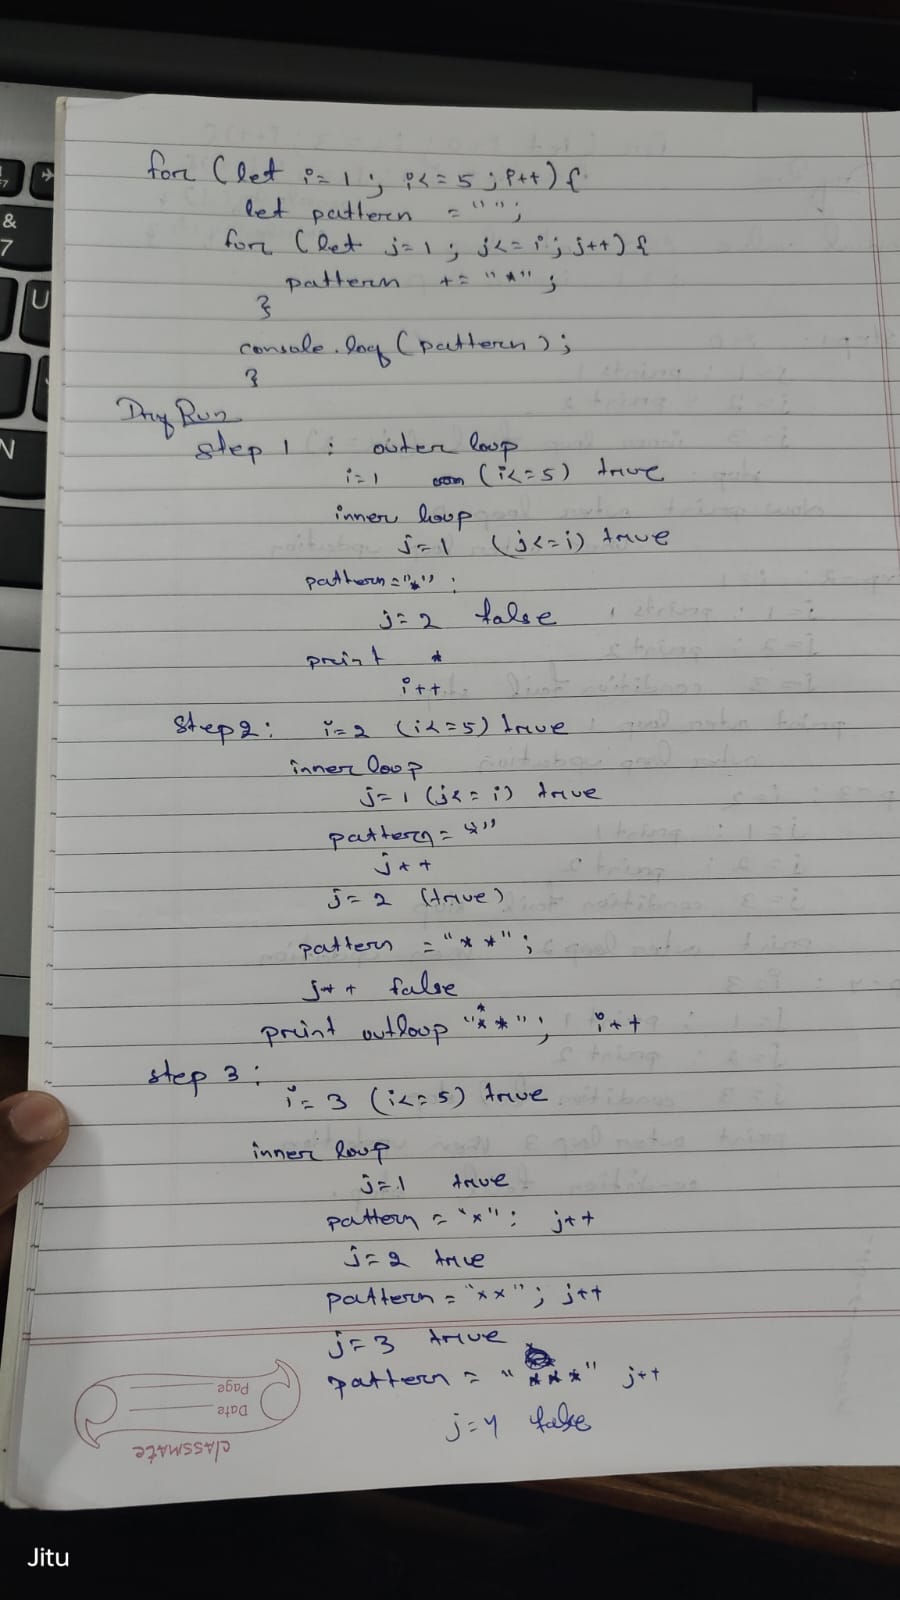 for (let i=1; i<=5; i++) {
let pattern = "";
for (let j=1; j<=i; j++) {
pattern += "*";
}
console.log(pattern);
}
Dry Run
step 1 : outer loop
i=1 (i<=5) true
inner loop
j=1 (j<=i) true
pattern="*";
j=2 false
print *
i++
Step2: i=2 (i<=5) true
inner loop
j=1 (j<=i) true
pattern="*"
j++
j=2 (true)
pattern = "**";
j++ false
print outloop "**"; i++
step 3:
i=3 (i<=5) true
inner loop
j=1 true
pattern = "*"; j++
j=2 true
pattern = "**"; j++
j=3 true
pattern = "***" j++
j=4 false
classmate
Date
Page
Jitu
&
7
U
N
F7